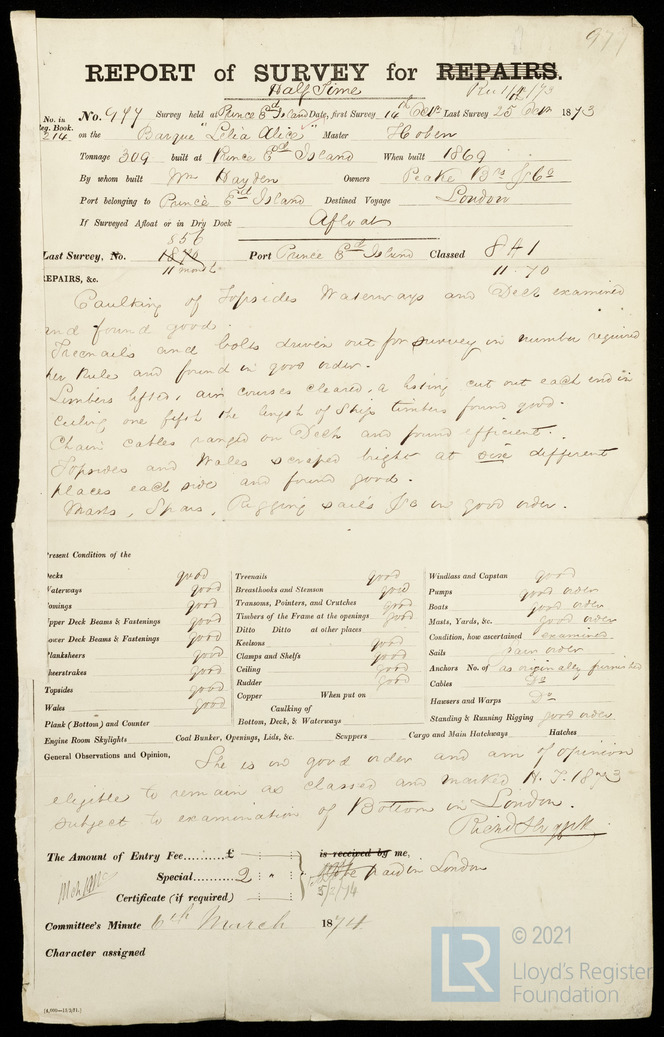 977
REPORT of SURVEY for REPAIRS.
Half Time
No. in Reg. Book. 214
No. 977 Survey held at Prince Ed Island Date, first Survey 14th Octr Last Survey 25 1873
on the Barque "Lelia Alice" Master Hoben
Tonnage 309 built at Prince Ed Island When built 1869
By whom built Wm Hayden Owners Peake Bros & Co
Port belonging to Prince Ed Island Destined Voyage London
If Surveyed Afloat or in Dry Dock Afloat
556
Last Survey, No. 1870 Port Prince Ed Island Classed 8 A 1
11 month 11.70
REPAIRS, &c.
Caulking of Topsides Waterways and Deck examined
and found good.
Treenails and bolts driven out for survey in number required
per Rule and found in good order.
Limbers lifted, air courses cleared, a listing cut out each end in
Ceiling one fifth the length of Ship timbers found good.
Chain cables ranged on Deck and found efficient.
Topsides and Wales scraped bright at different
places each side and found good.
Masts, Spars, Rigging sails &c in good order.
Present Condition of the
Decks good
Waterways good
Comings good
Upper Deck Beams & Fastenings good
Lower Deck Beams & Fastenings good
Planksheers good
Sheerstrakes good
Topsides good
Wales good
Plank (Bottom) and Counter
Treenails good
Breasthooks and Stemson good
Transoms, Pointers, and Crutches good
Timbers of the Frame at the openings good
Ditto Ditto at other places
Keelsons good
Clamps and Shelfs good
Ceiling good
Rudder good
Copper When put on
Caulking of
Bottom, Deck, & Waterways
Windlass and Capstan good
Pumps good order
Boats good order
Masts, Yards, &c. good order
Condition, how ascertained examined
Sails order
Anchors No. of as originally furnished
Cables Do
Hawsers and Warps Do
Standing & Running Rigging good order
Engine Room Skylights Coal Bunker, Openings, Lids, &c. Scuppers Cargo and Main Hatchways Hatches
General Observations and Opinion, She is in good order and am of opinion
eligible to remain as classed and marked H.T. 1873
subject to examination of Bottom in London.
The Amount of Entry Fee £ : : is received by me,
Special 2 " : paid in London
5/2/74
Certificate (if required) : :
Committee's Minute 6th March 1874
Character assigned
[4,000—12/3/71.]
LR
© 2021
Lloyd's Register
Foundation